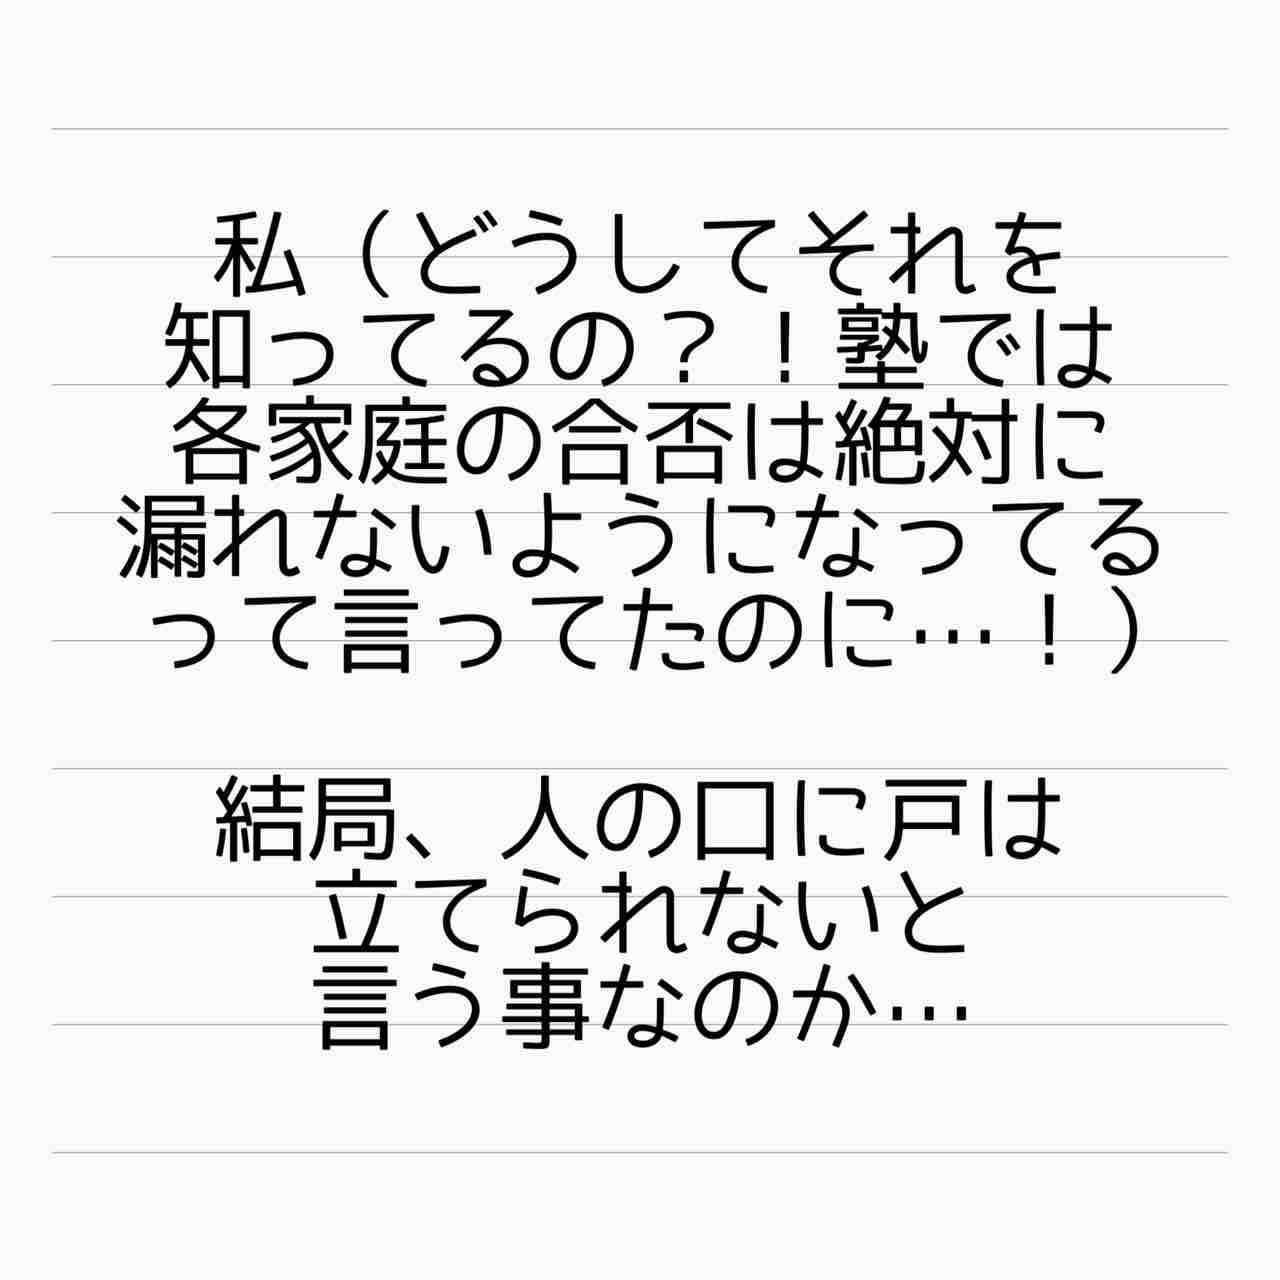 私（どうしてそれを
知ってるの？！塾では
各家庭の合否は絶対に
漏れないようになってる
って言ってたのに…！）
結局、人の口に戸は
立てられないと
言う事なのか…